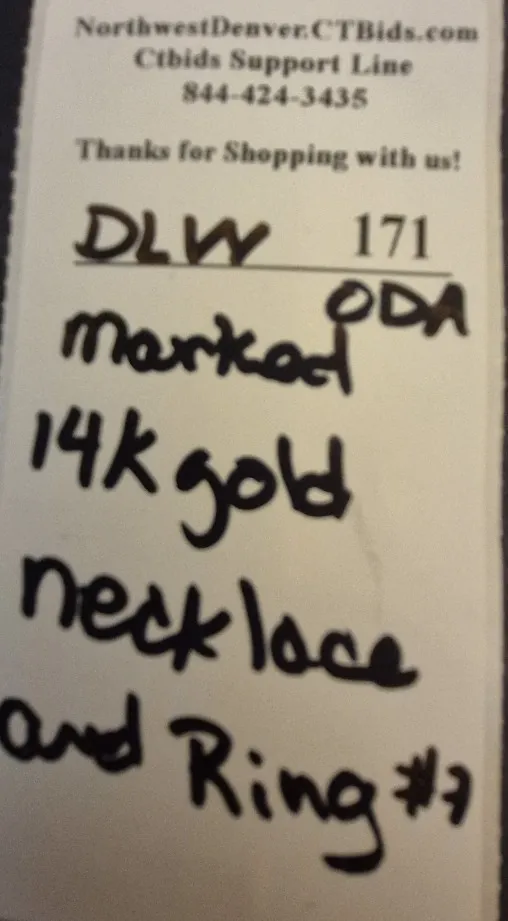 NorthwestDenver.CTBids.com
Ctbids Support Line
844-424-3435
Thanks for Shopping with us!
DLW 171
ODA
marked
14k gold
necklace
and Ring #7